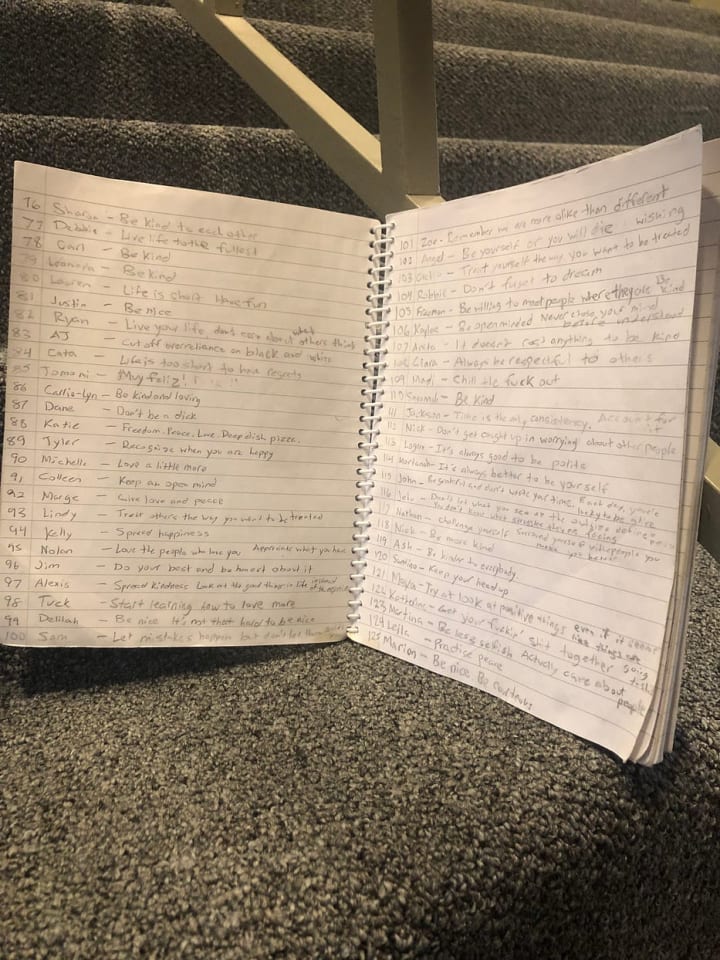 76 Sharon - Be kind to each other
77 Debbie - Live life to the fullest
78 Carl - Be kind
79 Leonora - Be kind
80 Lauren - Life is short Have fun
81 Justin - Be nice
82 Ryan - Live your life, dont care about what others think
83 AJ - Cut off overreliance on black and white
84 Cata - Life is too short to have regrets
85 Jomomi - Muy feliz!
86 Carlia-Lyn - Be kind and loving
87 Dane - Don't be a dick
88 Katie - Freedom. Peace. Love. Deep dish pizza.
89 Tyler - Recognize when you are happy
90 Michelle - Love a little more
91 Colleen - Keep an open mind
92 Marge - Give love and peace
93 Lindy - Treat others the way you want to be treated
94 Kelly - Spread happiness
95 Nolan - Love the people who love you Appreciate what you have
96 Jim - Do your best and be honest about it
97 Alexis - Spread kindness Look at the good things in life instead of the
98 Tuck - Start learning how to love more
99 Delilah - Be nice It's not that hard to be nice
100 Sam - Let mistakes happen but don't let them
101 Zoe - Remember we are more alike than different
102 Angel - Be yourself or you will die wishing
103 - Treat yourself the way you want to be treated
104 Robbie - Don't forget to dream
105 Freeman - Be willing to meet people where they are Be kind
106 Kaylee - Be open minded Never close your mind
107 Anita - It doesn't cost anything to be kind
108 Ciara - Always be respectful to others
109 Madi - Chill the fuck out
110 Savannah - Be kind
111 Jackson - Time is the only consistency. Account for it
112 Nick - Don't get caught up in worrying about other people
113 Logan - It's always good to be polite
114 Mariamah - It's always better to be yourself
115 John - Be grateful and don't waste your time. Each day, you're lucky to be alive
116 - Don't let what you see on the outside define a person You don't know what struggles they're facing
117 Nathan - Challenge yourself Surround yourself with people you make you better
118 Nick - Be more kind
119 Ash - Be kinder to everybody
120 Santiago - Keep your head up
121 Maya - Try at look at positive things even if it seems like things are going to shit
122 Katherine - Get your fuckin' shit together
123 Martina - Be less selfish Actually care about people
124 Lejla - Practise peace
125 Marion - Be nice Be courteous